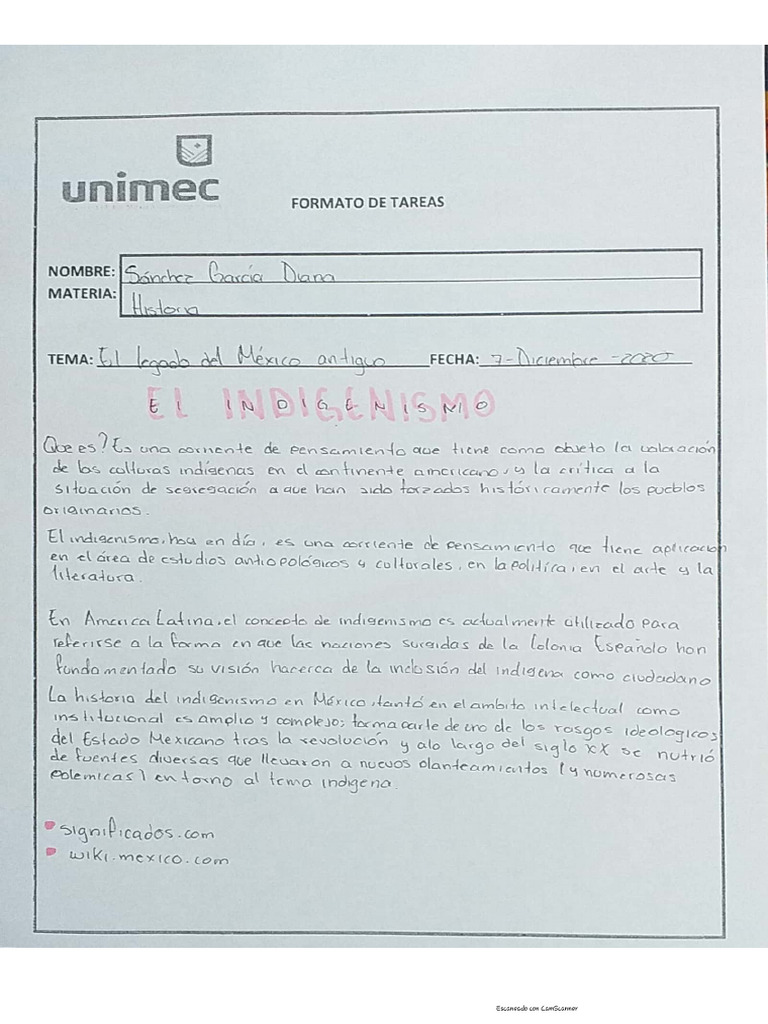 unimec
FORMATO DE TAREAS
NOMBRE: Sánchez García Diana
MATERIA: Historia
TEMA: El legado del México antiguo FECHA: 7-Diciembre-2020
EL INDIGENISMO
Que es? Es una corriente de pensamiento que tiene como objeto la valoración
de las culturas indígenas en el continente americano, y la crítica a la
situación de segregación a que han sido forzados históricamente los pueblos
originarios.
El indigenismo, hoy en día, es una corriente de pensamiento que tiene aplicación
en el área de estudios antropológicos y culturales, en la política, en el arte y la
literatura.
En América Latina, el concepto de indigenismo es actualmente utilizado para
referirse a la forma en que las naciones surgidas de la Colonia Española han
fundamentado su visión hacerca de la inclusión del indígena como ciudadano
La historia del indigenismo en México, tantó en el ambito intelectual como
institucional es amplio y complejo; forma parte de uno de los rasgos ideologicos
del Estado Mexicano tras la revolución y alo largo del siglo XX se nutrió
de fuentes diversas que llevaron a nuevos planteamientos (y numerosas
polemicas) entorno al tema indigena.
significados.com
wiki.mexico.com
Escaneado con CamScanner